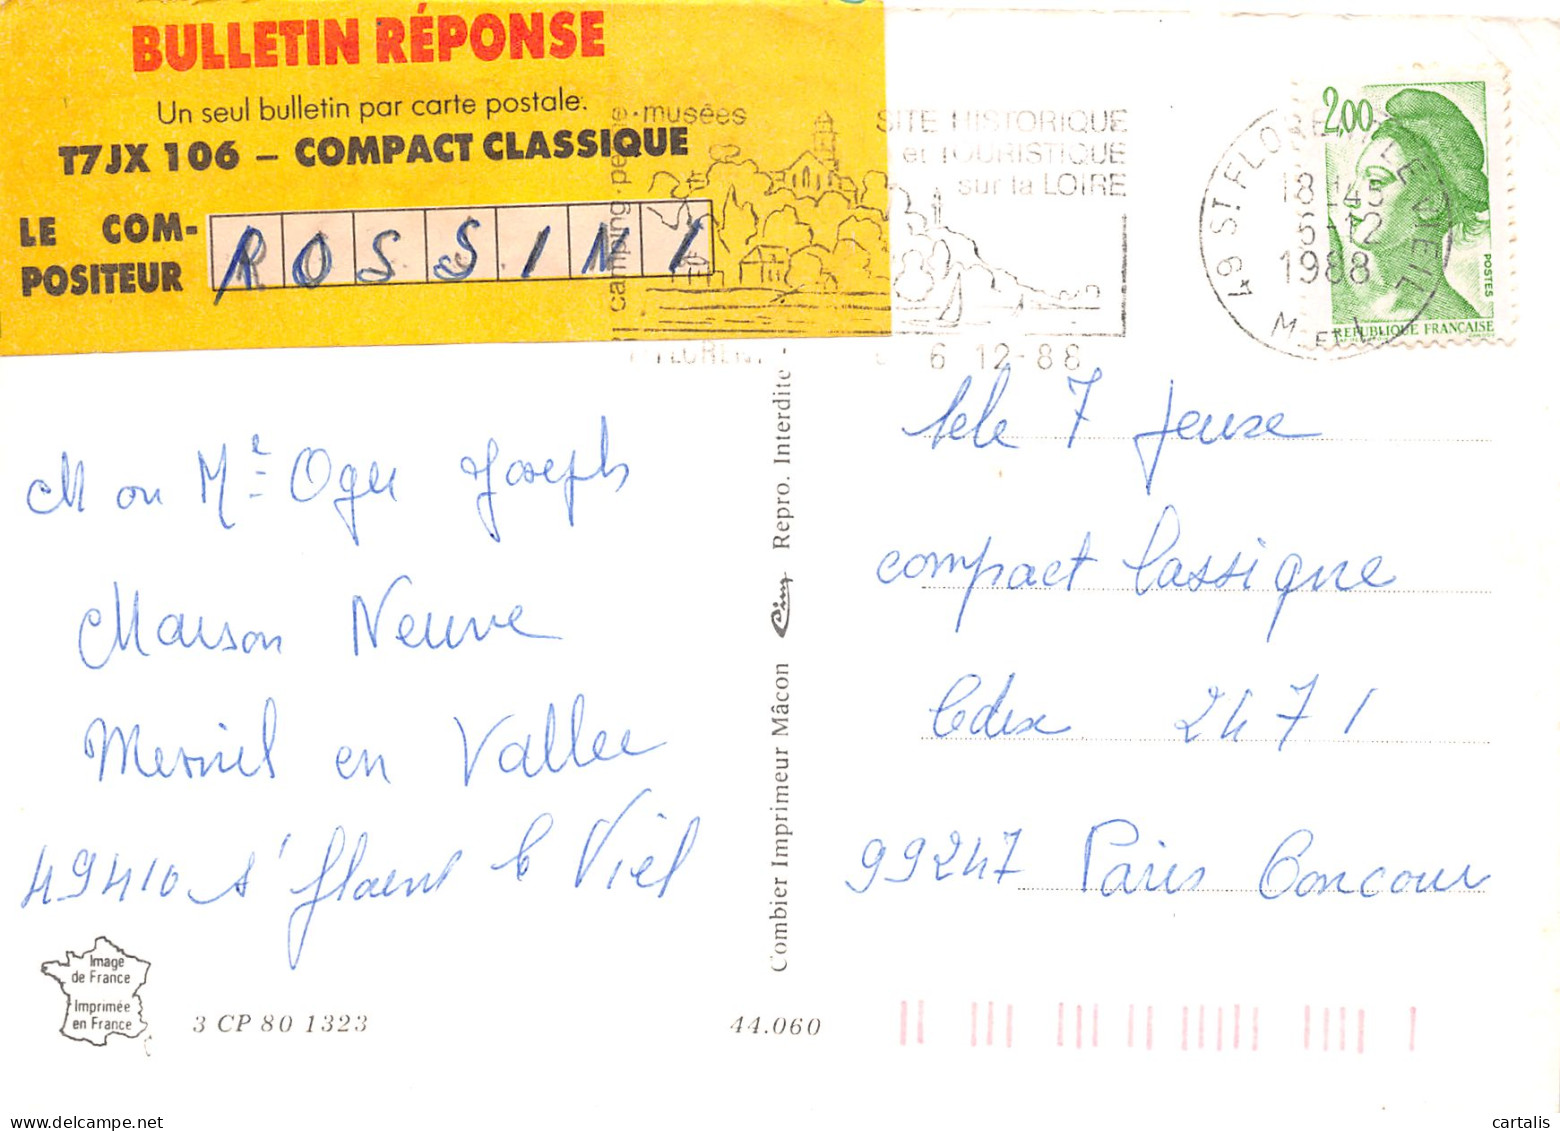 BULLETIN RÉPONSE
Un seul bulletin par carte postale.
T7JX 106 – COMPACT CLASSIQUE
LE COM-
POSITEUR
ROSSINI
musées
camping
SITE HISTORIQUE
et TOURISTIQUE
sur la LOIRE
6 12-88
49 ST. FLORENT LE VIEIL
18 H45
6-12
1988
M.-ET-L.
2,00
POSTES
REPUBLIQUE FRANÇAISE
M ou Me Oger Joseph
Maison Neuve
Mesnil en Vallee
49410 St Florent le Viel
tele 7 Jeux
compact Classique
Cdex 2471
99247 Paris Concour
Combier Imprimeur Mâcon Cim Repro. Interdite -
Image
de France
Imprimée
en France
3 CP 80 1323
44.060
cartalis